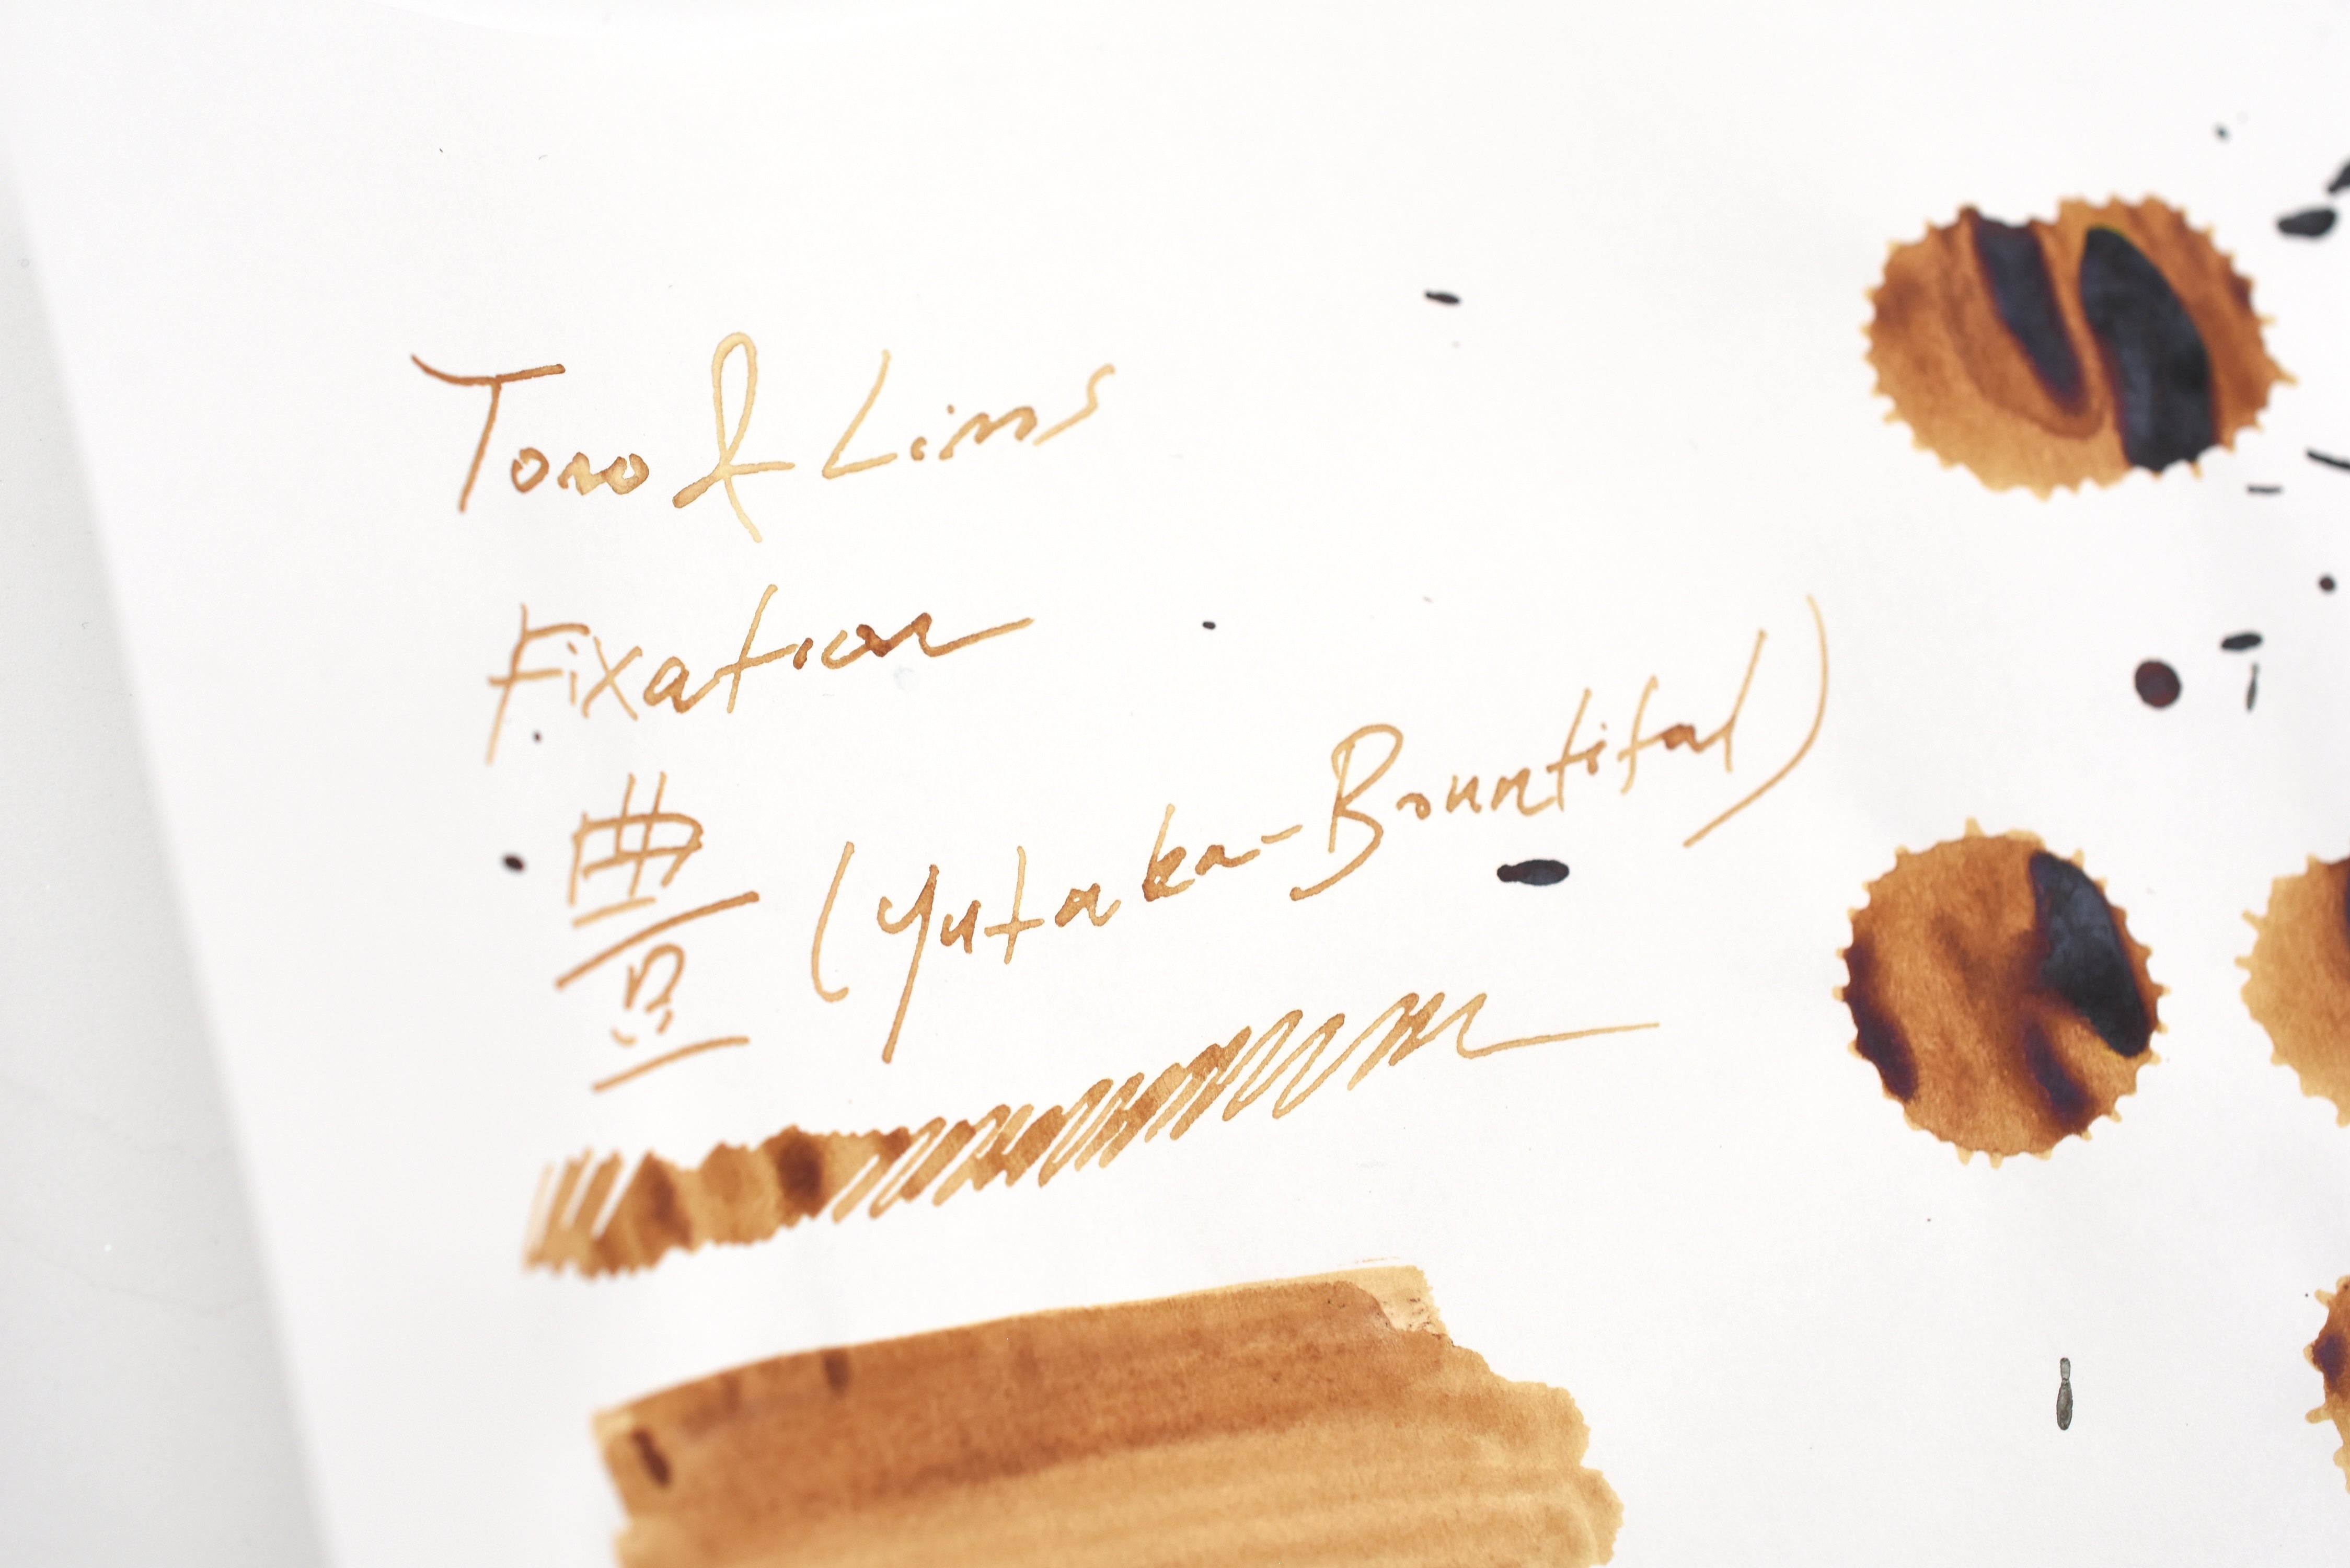 Tono & Lims
Fixation
豊 (Yutaka-Bountiful)